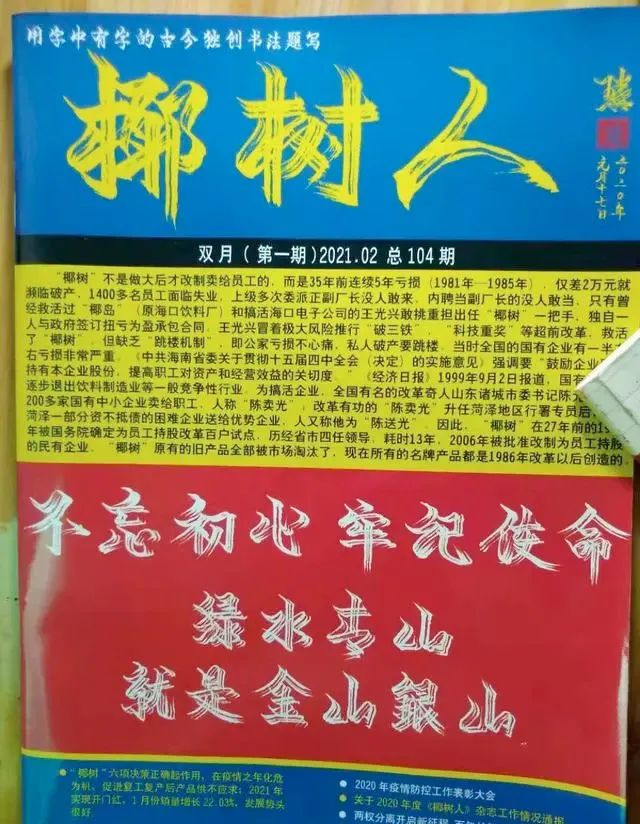 用字中有字的古今独创书法题写
椰树人
二〇二〇年
元月十七日
双月(第一期)2021.02 总104期
“椰树”不是做大后才改制卖给员工的,而是35年前连续5年亏损(1981年—1985年),仅差2万元就
濒临破产,1400多名员工面临失业,上级多次委派正副厂长没人敢来,内聘当副厂长的没人敢当,只有曾
经救活过“椰岛”(原海口饮料厂)和搞活海口电子公司的王光兴敢挑重担出任“椰树”一把手,独自一
人与政府签订扭亏为盈承包合同。王光兴冒着极大风险推行“破三铁”、“科技重奖”等超前改革,救活
了“椰树”,但缺乏“跳楼机制”,即公家亏损不心痛,私人破产要跳楼。当时全国的国有企业有一半左
右亏损非常严重,《中共海南省委关于贯彻十五届四中全会(决定)的实施意见》强调要“鼓励企业
持有本企业股份,提高职工对资产和经营效益的关切度。”《经济日报》1999年9月2日报道,国有
逐步退出饮料制造业等一般竞争性行业,为搞活企业,全国有名的改革奇人山东诸城市委书记陈光
200多家国有中小企业卖给职工,人称“陈卖光”;改革有功的“陈卖光”升任菏泽地区行署专员后,
菏泽一部分资不抵债的困难企业送给优势企业,人又称他为“陈送光”。因此,“椰树”在27年前的19
年被国务院确定为员工持股改革百户试点,历经省市四任领导,耗时13年,2006年被批准改制为员工持股
的民有企业。“椰树”原有的旧产品全部被市场淘汰了,现在所有的名牌产品都是1986年改革以后创造的。
不忘初心 牢记使命
绿水青山
就是金山銀山
“椰树”六项决策正确起作用,在疫情之年化危
为机,促进复工复产后产品供不应求;2021年
实现开门红,1月份销量增长22.03%,发展势头
很好
2020年疫情防控工作表彰大会
关于2020年度《椰树人》杂志工作情况通报
两权分离开启新征程